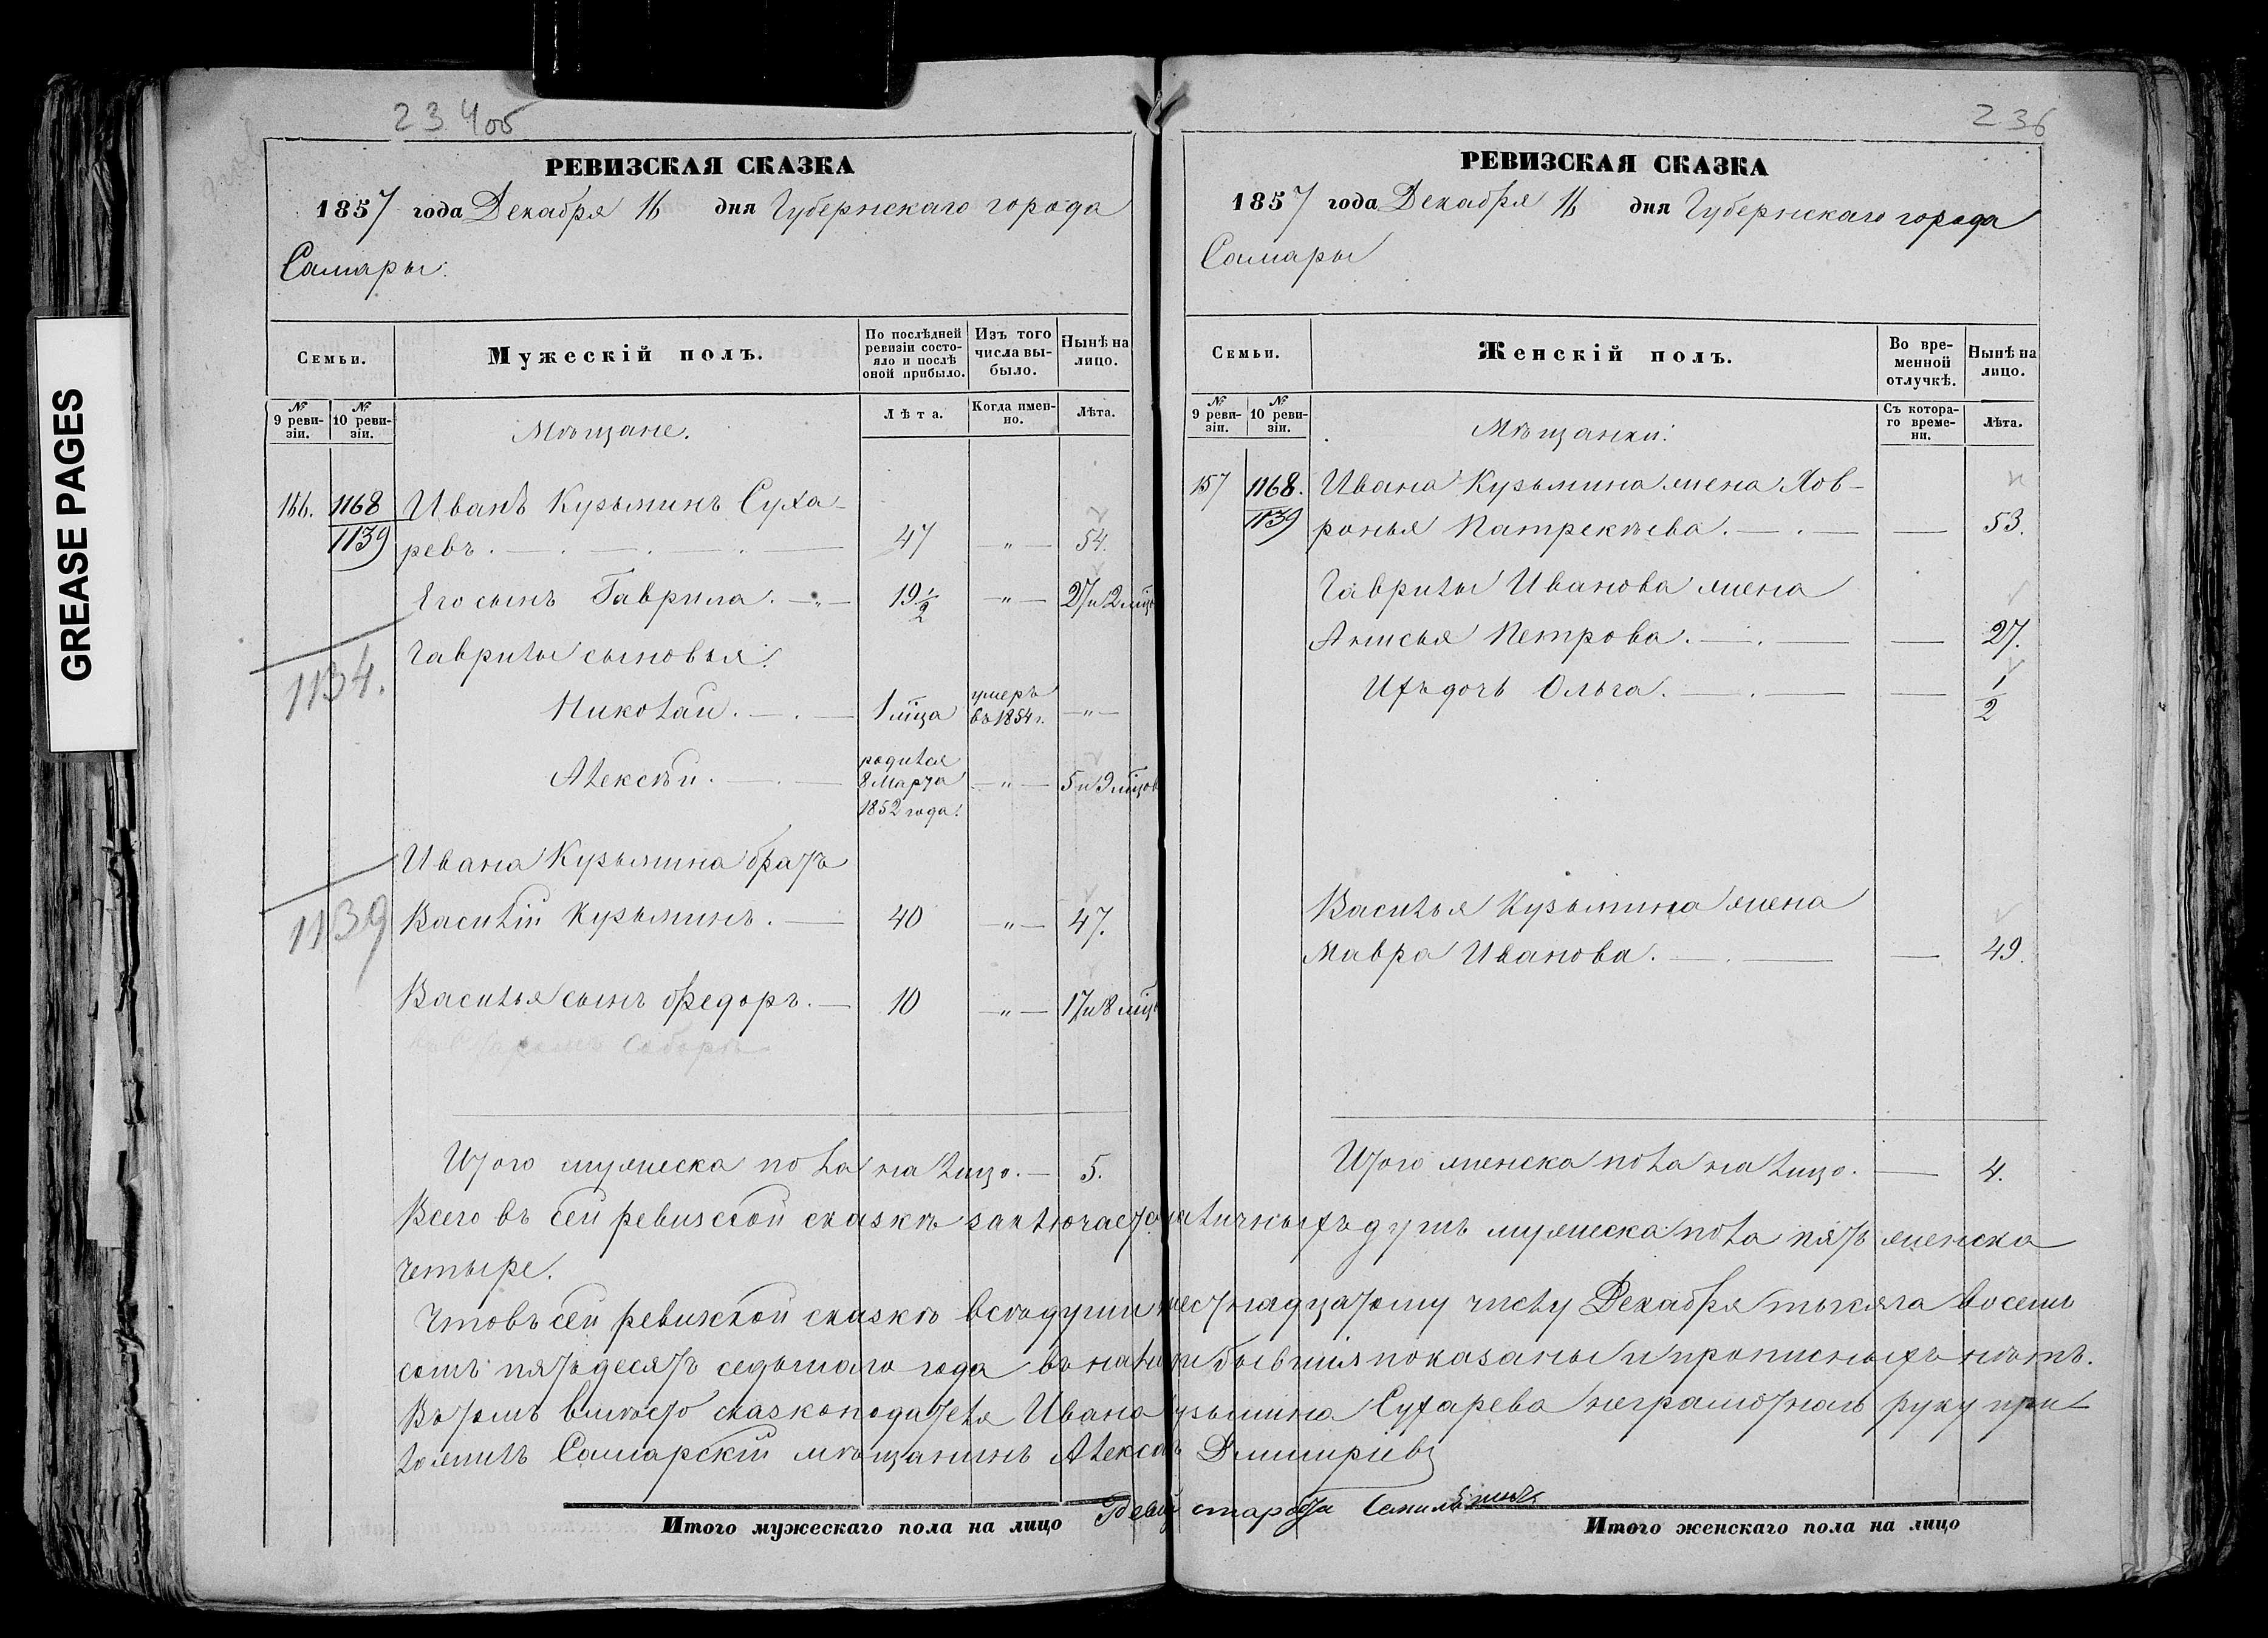 GREASE PAGES
234об
РЕВИЗСКАЯ СКАЗКА
1857 года Декабря 16 дня Губернскаго города
Самары.
Семьи.
Мужескій полъ.
По послѣдней ревизіи состояло и послѣ оной прибыло.
Изъ того числа выбыло.
Нынѣ на лицо.
№ 9 ревизіи.
№ 10 ревизіи.
Мѣщане.
Лѣта.
Когда именно.
Лѣта.
166. 1168 Иванъ Кузьминъ Суха-
1139 ревъ. 47 — " — 54.
Его сынъ Гаврила. 19 1/2 — " — 27 и 2 мѣс
1134.
Гаврилы сыновья:
Николай. 1 мѣца умеръ въ 1854 г. — " —
Алексѣй. родился 8 Марта 1852 года. — " — 5 и 9 мѣцов
Ивана Кузьмина братъ
1139
Василій Кузьминъ. 40 — " — 47.
Василья сынъ Федоръ. 10 — " — 17 и 8 мѣц
Итого мужеска пола на лицо. — 5.
236
РЕВИЗСКАЯ СКАЗКА
1857 года Декабря 16 дня Губернскаго города
Самары
Семьи.
Женскій полъ.
Во временной отлучкѣ.
Нынѣ на лицо.
№ 9 ревизіи.
№ 10 ревизіи.
Мѣщанки:
Съ котораго времени.
Лѣта.
157 1168. Ивана Кузьмина жена Хов-
1139 ронья Патрекѣева. — 53.
Гаврилы Иванова жена
Анисья Петрова. — 27.
Ихъ дочь Ольга. — 1/2
Василья Кузьмина жена
Мавра Иванова. — 49.
Итого женска пола на лицо. — 4.
Всего въ сей ревизской сказкѣ заключается наличныхъ душъ мужеска пола пять женска
четыре.
Что въ сей ревизской сказкѣ всѣ души шестнадцатому числу Декабря тысяча восемь
сотъ пятьдесятъ седьмаго года въ наличи бывшия показаны и прописныхъ нѣтъ.
Въ томъ вмѣсто сказкоподателя Ивана Кузьмина Сухарева неграмотнаго руку при-
ложилъ Самарскій мѣщанинъ Алексѣй Дмитріевъ
староста
Итого мужескаго пола на лицо
Итого женскаго пола на лицо